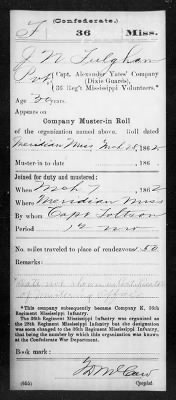 (Confederate.)
F 36 Miss.
J N Fulghum
Pvt, Capt. Alexander Yates' Company
(Dixie Guards),
36 Reg't Mississippi Volunteers.*
Age 30 years.
Appears on
Company Muster-in Roll
of the organization named above. Roll dated
Meridian Miss, Mch 28, 1862.
Muster-in to date , 186 .
Joined for duty and mustered:
When Mch 7, 1862
Where Meridian Miss
By whom Capt
Period 12 mo
No. miles traveled to place of rendezvous, 50.
Remarks:
*This company subsequently became Company K, 36th
Regiment Mississippi Infantry.
The 36th Regiment Mississippi Infantry was organized as
the 28th Regiment Mississippi Infantry but the designation
was soon changed to the 36th Regiment Mississippi Infantry,
that being the number by which this organization was known
at the Confederate War Department.
Book mark:
(655) Copyist